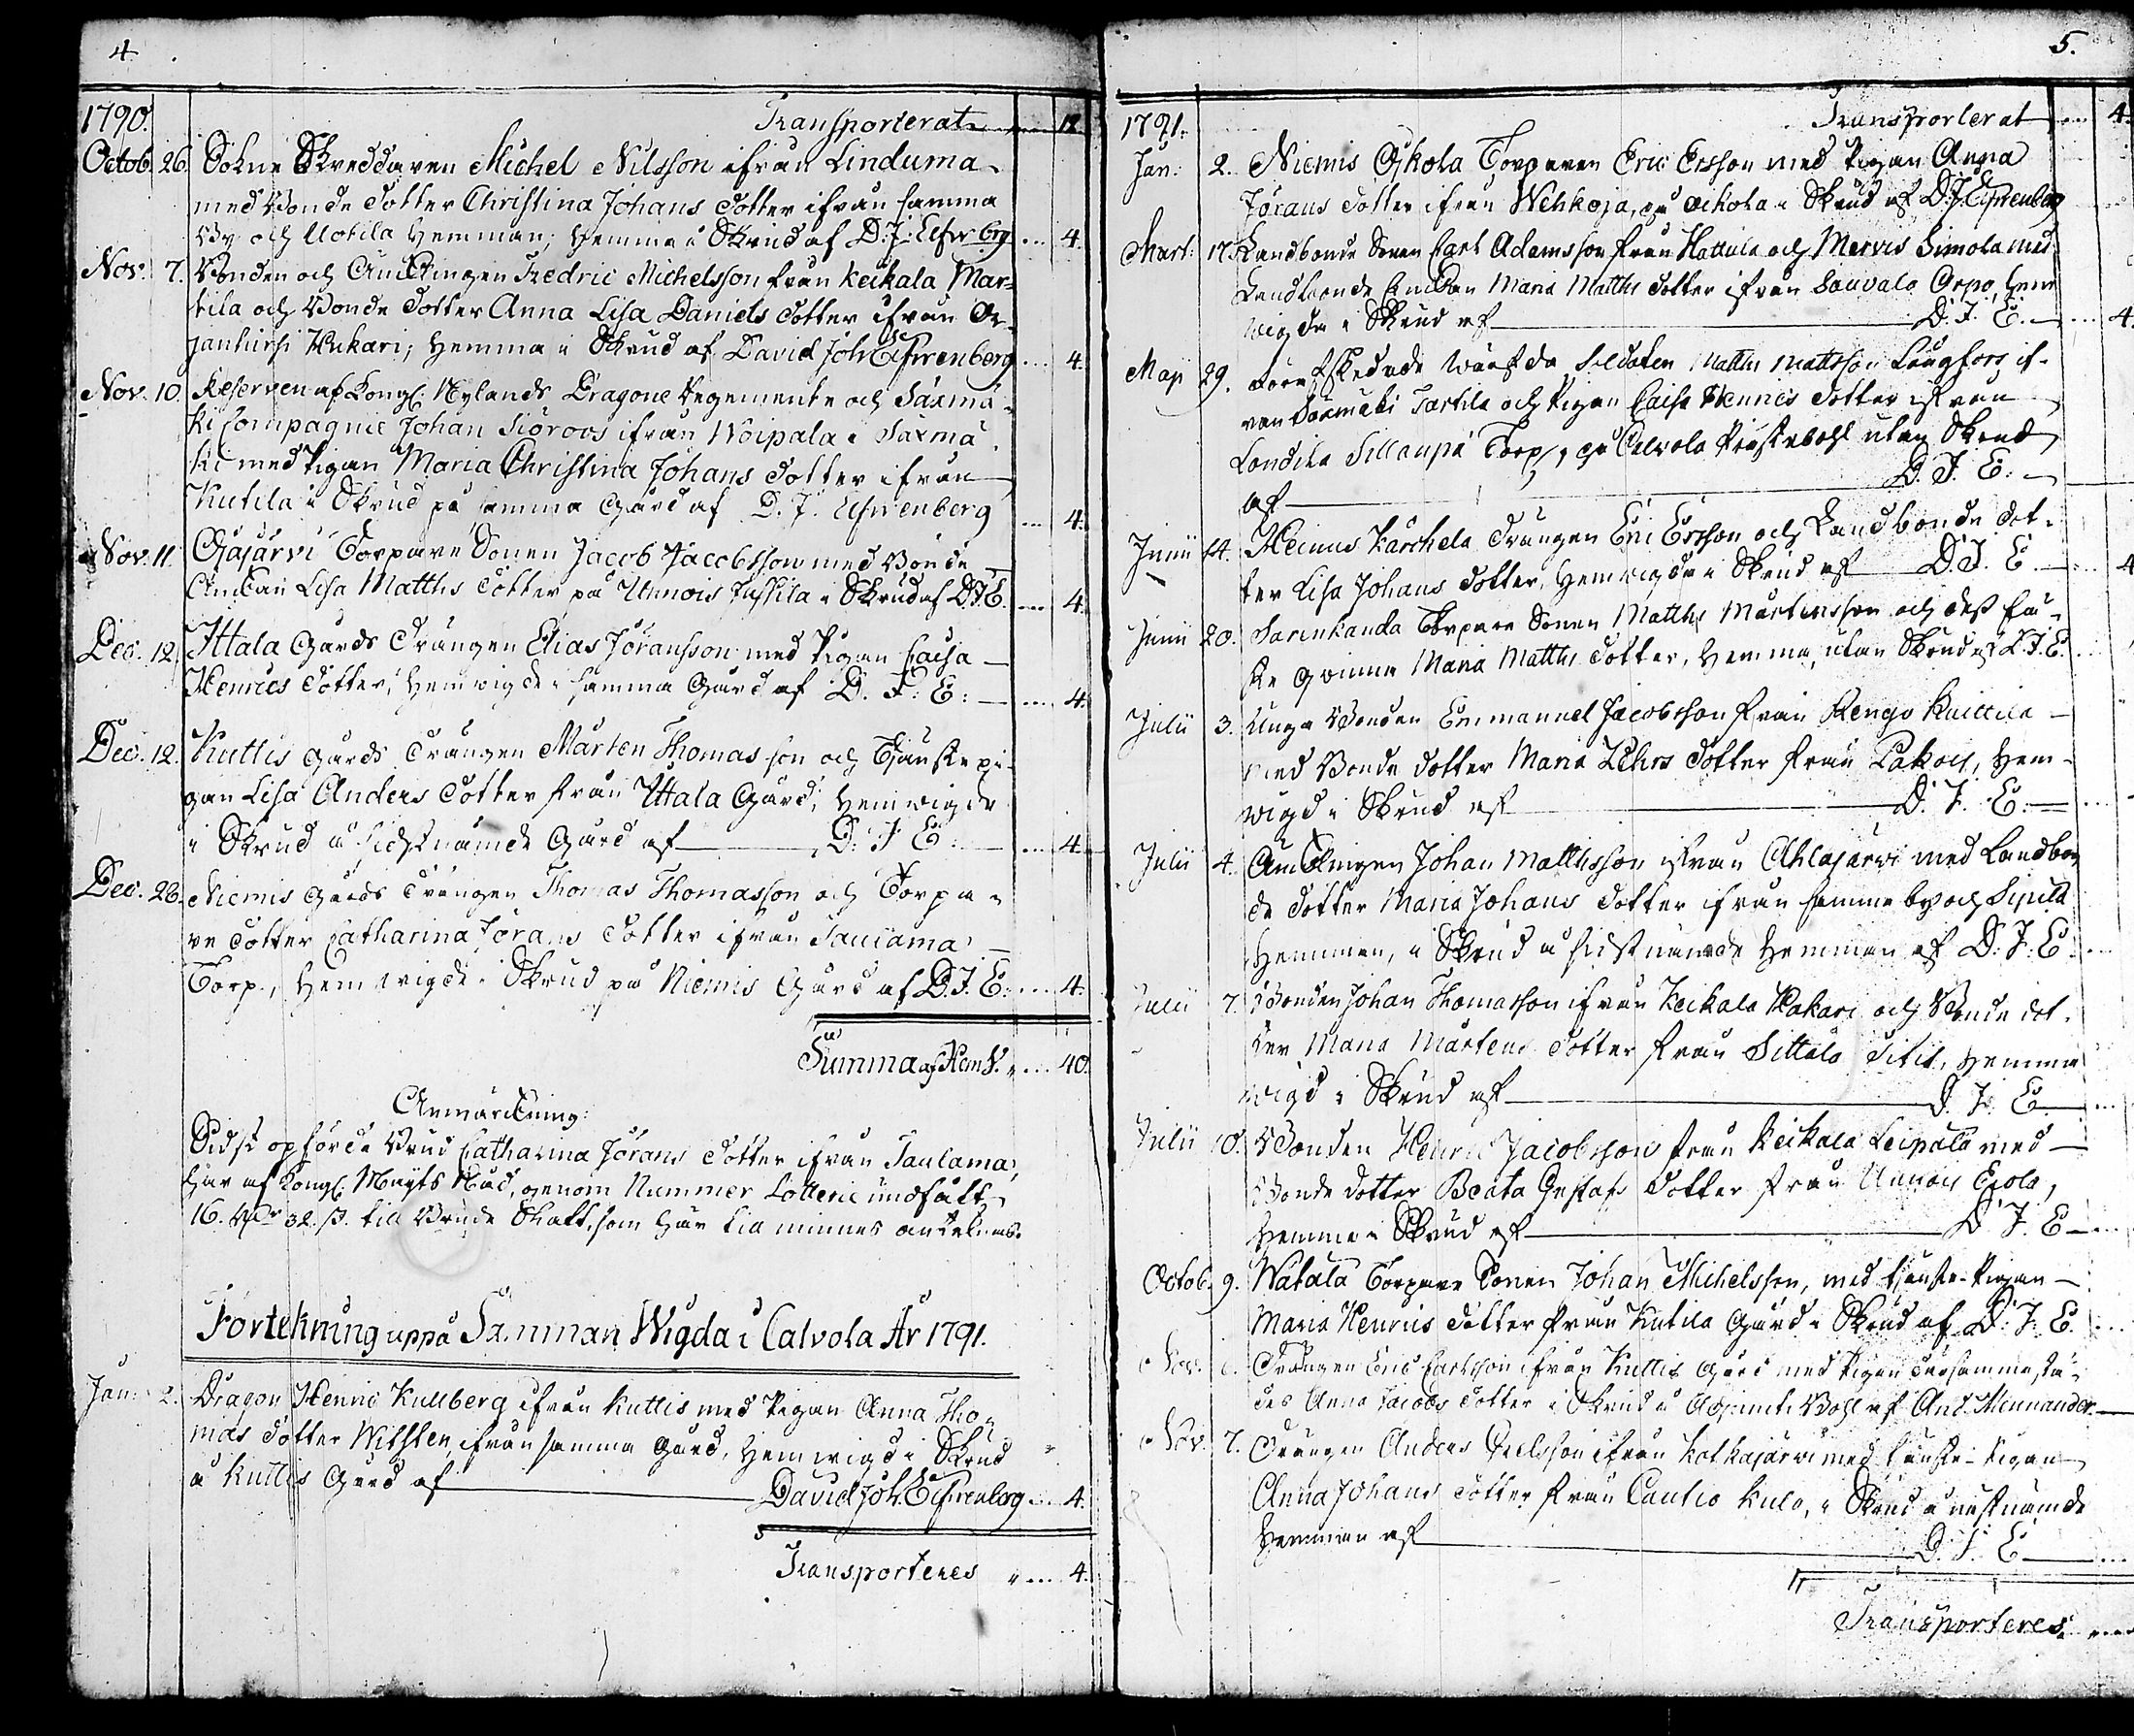 4.
1790.
Transporterat 12.
Octob. 26. Sokne Skreddaren Michel Nilsson ifrån Linduma
med Bonde dotter Christina Johans dotter ifrån samma
By och Uotila Hemman; Hemma i Skrud af D. J. Elfwrbrg ... 4.
Nov. 7. Bonden och Enklingen Fredric Michelsson från Keikala Mar-
tila och Bonde dotter Anna Lisa Daniels dotter ifrån Or-
janhirsi Kukari; Hemma i Skrud af David Joh. Elfwenberg ... 4.
Nov. 10. Reserven af Kongl. Nylands Dragone Regemente och Säxmä-
ki Compagnie Johan Sioroos ifrån Woipala i Saxmä-
ki med Pigan Maria Christina Johans dotter ifrån
Kutila i Skrud på samma Gård af D. J. Elfwenberg ... 4.
Nov. 11. Ojajärvi Torpare Sonen Jacob Jacobsson med Bonde
Enkan Lisa Matths dotter på Unnois Jussila i Skrud af D. J. E. ... 4.
Dec. 12. Ittala Gårds Drängen Elias Jöransson med Pigan Caisa
Henrics dotter, Hemwigde i samma Gård af D. J. E: ... 4.
Dec. 12. Kuttis Gårds Drängen Mårten Thomasson och Tjänstepi-
gan Lisa Anders dotter från Ittala Gård, Hemwigde
i Skrud å sidstnämde Gård af D. J. E: ... 4.
Dec. 26. Niemis Gårds Drängen Thomas Thomasson och Torpa-
re dotter Catharina Jörans dotter ifrån Taulama
Torp, Hemwigde i Skrud på Niemis Gård af D. J. E: ... 4.
Summa af HemV. ... 40.
Anmärckning:
Sidst opförde Brud Catharina Jörans dotter ifrån Taulama,
har af Kongl. Mayts Nåd, genom Nummer Lotterie undfått
16. Rdr 32. ß. till Brude Skatt, som här till minnes anteknas.
Förtekning uppå Samman Wigda i Calvola År 1791.
Jan: 2. Dragon Henric Kullberg ifrån Kuttis med Pigan Anna Tho-
mas dotter Witsten, ifrån samma Gård, Hemwigd i Skrud
å Kuttis Gård af David Joh. Elfwenberg ... 4.
Transporteres ... 4.
5.
1791.
Transporterat ... 4.
Jan: 2. Niemis Ojkola Torparen Eric Ersson med Pigan Anna
Jörans dotter ifrån Wehkoja, på Ojkola i Skrud af D. J. Elfwenberg
Mart: 17. Landbonde Sonen Carl Adamsson från Hattula och Mervis Simola med
Landbonde Enkan Maria Matths dotter ifrån Sauvala Orpo, hem
wigda i Skrud af D. J. E. ... 4.
Maji 29. afskedade Soldaten Matths Mattsson Långfors if-
rån Saxmäki Tartila och Pigan Caisa Henrics dotter ifrån
Sillanpä Torp, på Calvola Prästebohl utan Skrud
af D. J. E:
Junii 14. Heinus Karchela Drängen Eric Ersson och Landbonde dot-
ter Lisa Johans dotter, Hemwigda i Skrud af D. J. E. ... 4
Junii 20. Sarenkanda Torpare Sonen Matths Mårtensson och dess Fä-
ste Qwinna Maria Matths dotter, Hemma, utan Skrud af D. J. E.
Julii 3. Unga Bonden Emmanuel Jacobsson från Rengo Kuittila
med Bonde dotter Maria Pehrs dotter från Pakois, Hem-
wigd i Skrud af D. J. E.
Julii 4. Enklingen Johan Matthsson ifrån Ahlajärwi med Landbon
de dotter Maria Johans dotter ifrån samma by och Sipilä
Hemman, i Skrud å sidstnämde Hemman af D. J. E.
Julii 7. Bonden Johan Thomasson ifrån Keikala Hakari och Bonde dot-
ter Maria Mårtens dotter från Sittala Hemma
wigd i Skrud af D. J. E.
Julii 10. Bonden Henric Jacobsson från Keikala Leipälä med
Bonde dotter Beata Gustafs dotter från Unnois Eiola,
Hemma i Skrud af D. J. E.
Octob. 9. Watala Torpare Sonen Johan Michelsson, med tjenste-Pigan
Maria Henrics dotter från Kutila Gård i Skrud af D. J. E.
Nov. 6. Drängen Eric Carlsson ifrån Kuttis Gård med Pigan dersammastä-
des Anna Jacobs dotter i Skrud å Adjuncts Bohl af And. Mennander
Nov. 7. Drängen Anders ifrån Kotkajärwi med tienste-Pigan
Anna Johans dotter från Cautio Kulo, i Skrud å nästnämde
Hemman af D. J. E.
Transporteres